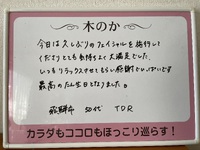 木のか
今日は久しぶりのフェイシャルを施行して
くださりとても気持ちよく大満足でした。
いつもリラックスさせてもらい感謝でいっぱいです
最高のたん生日となりました。
飛騨市 50代 T.D.R
カラダもココロもほっこり巡らす！